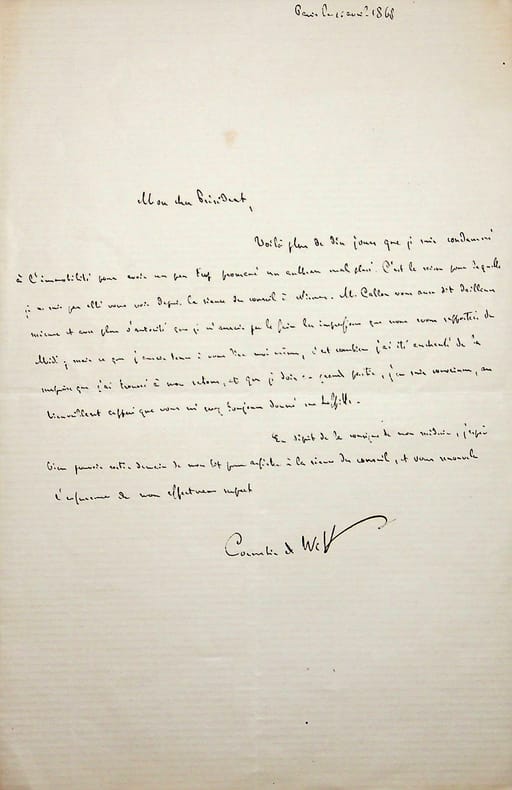 Paris le 15 avril 1868
Mon cher Président,
Voilà plus de dix jours que je suis condamné
à l'immobilité pour avoir un peu trop promené un mal placé. C'est la raison pour laquelle
je ne suis pas allé vous voir depuis la séance du conseil à. M. Callon vous aura dit d'ailleurs
mieux et avec plus d'autorité que je n'aurais pu le faire les impressions que nous avons rapportées du
Midi ; mais ce que j'aurais tenu à vous dire moi même, c'est combien j'ai été enchanté de la
que j'ai trouvé à mon retour, et que je dois en grande partie, j'en suis convaincu, au
bienveillant appui que vous m'avez toujours donné
En dépit de la consigne de mon médecin, j'espère
bien pouvoir sortir demain de mon lit pour assister à la séance du conseil, et vous renouveler
l'expression de mon affectueux respect
Cornelis de Witt